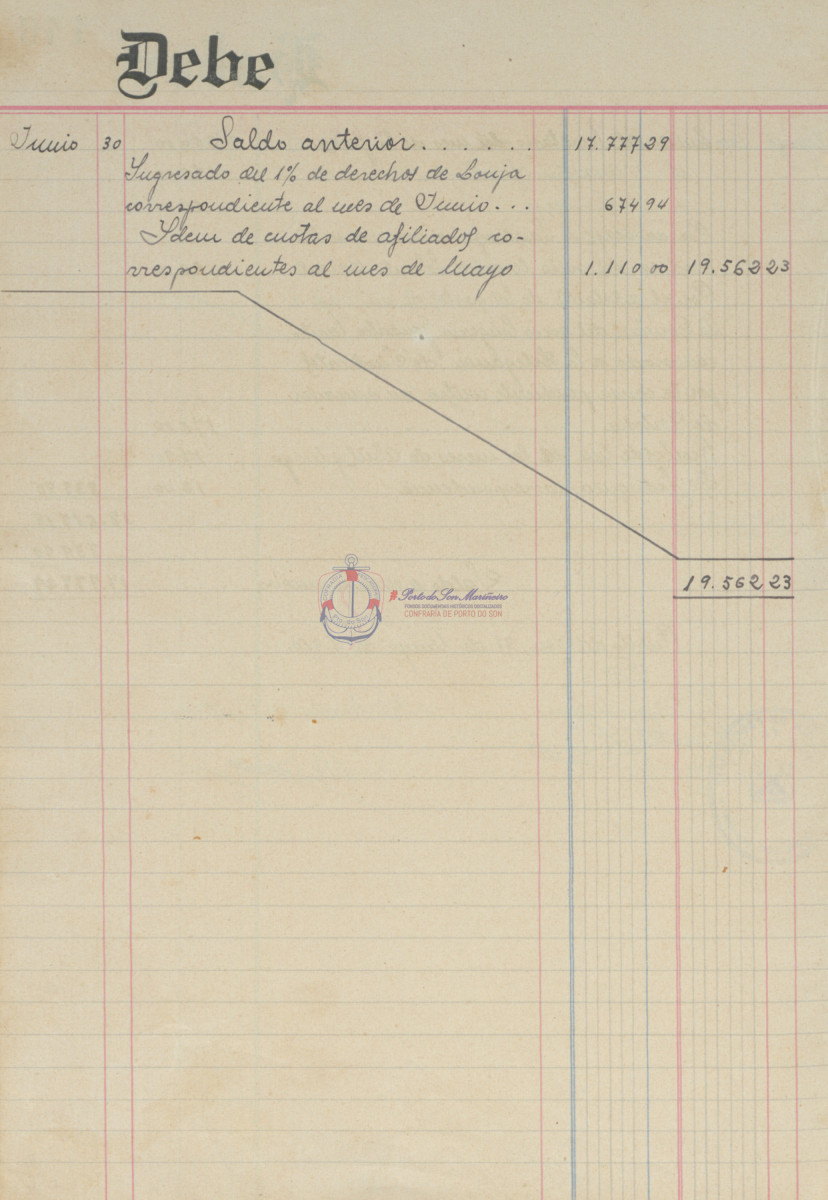 Debe
Junio 30 Saldo anterior . . . . . . 17.777 29
Ingresado del 1% de derechos de Lonja
correspondiente al mes de Junio . . . 674 94
Idem de cuotas de afiliados co-
rrespondientes al mes de Mayo 1.110 00 19.562 23
19.562 23
Porto do Son Mariñeiro
FONDOS DOCUMENTAIS HISTÓRICOS DIXITALIZADOS
CONFRARÍA DE PORTO DO SON